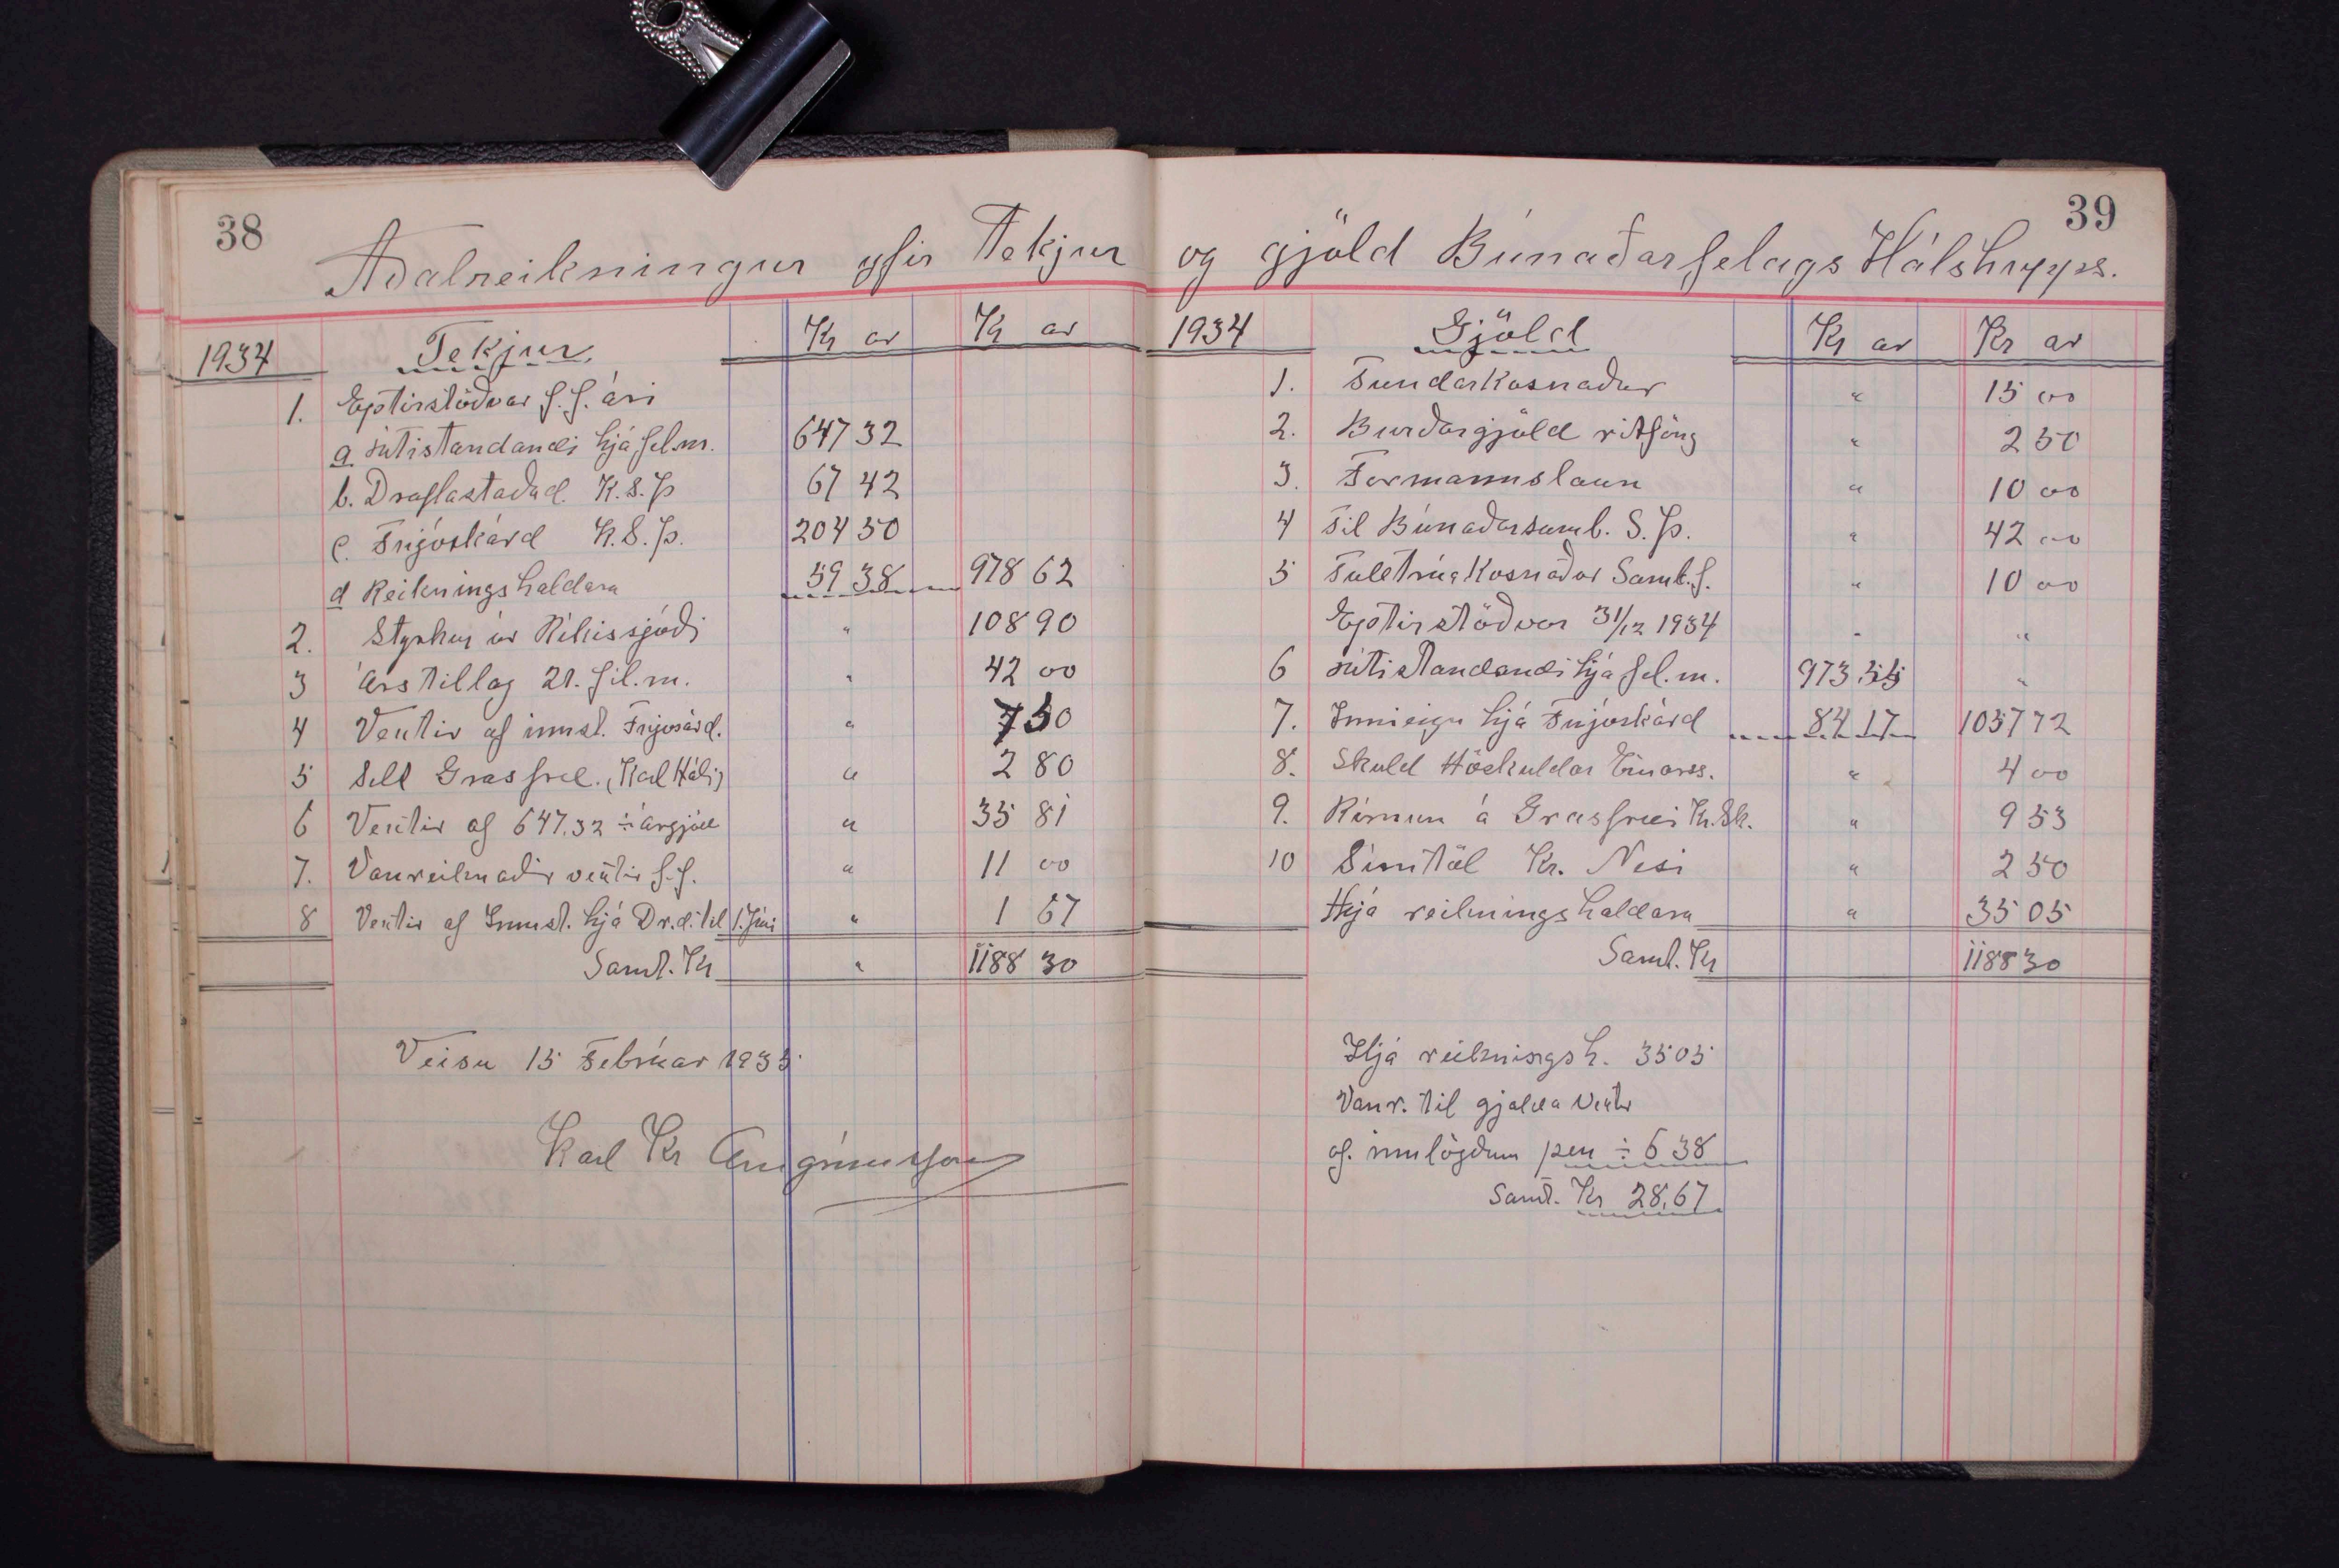 38
39
Aðalreikningur yfir Tekjur og gjöld Búnaðarfelags Hálshrepps.
1934 Tekjur Kr ar Kr ar
1. Eptirstöðvar f. f. ári
a útistandandi hjá fel.m. 647 32
b. Draflastaðad. K. S. Þ 67 42
c. Fnjóskárd K. S. Þ. 204 50
d Reikningshaldara 59 38 978 62
2. Styrkur úr Ríkissjóði " 108 90
3 Árstillag 21. fél.m. " 42 00
4 Vextir af innst. Fnjósárd. " 7 50
5 Selt Grasfræ. (Karl Háls) " 2 80
6 Vextir af 647.32 ÷ árgjöld " 35 81
7. Vanreiknaðir vextir f. f. " 11 00
8 Vextir af Innst. hjá Dr.d. til 1. Júní " 1 67
Samt. Kr " 1188 30
Veisu 15 Febrúar 1935
Karl Kr Arngrímsson
1934 Gjöld Kr ar Kr ar
1. Fundarkosnaður " 15 00
2. Burðargjöld ritföng " 2 50
3. Formannslaun " 10 00
4 Til Búnaðarsamb. S. Þ. " 42 00
5 Fulltrúakosnaður Samb.f. " 10 00
Eptirstöðvar 31/12 1934 " "
6 útistandandi hjá fel. m. 973.55 "
7. Innieign hjá Fnjóskárd 84 17 1057 72
8. Skuld Höskuldar Einarss. " 4 00
9. Rírnun á Grasfræi Kr. Sk. " 9 53
10 Símtöl Kr. Nesi " 2 50
Hjá reikningshaldara " 35 05
Samt. Kr 1188 30
Hjá reikningsh. 35 05
Vanr. til gjalda vextir
af. innlögðum pen ÷ 6 38
Samt. Kr 28,67